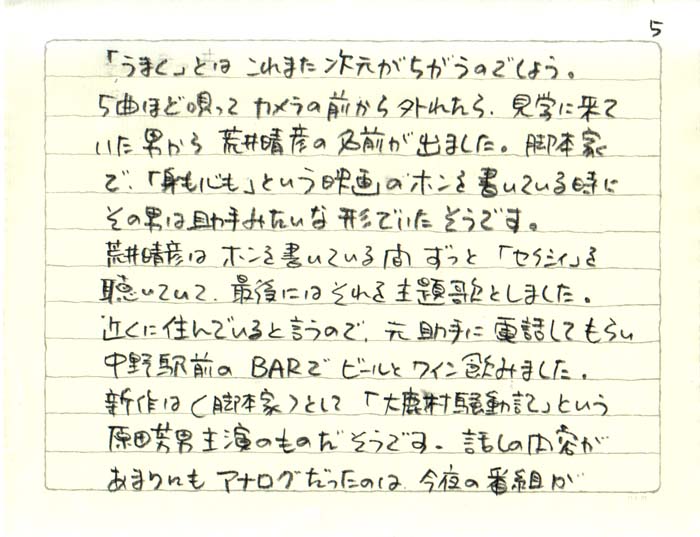 5
「うまく」とは これまた 次元がちがうのでしょう。
5曲ほど唄って カメラの前から外れたら、見学に来て
いた男から 荒井晴彦の名前が出ました。脚本家
で、「身も心も」という映画のホンを書いている時に
その男は助手みたいな形でいたそうです。
荒井晴彦は ホンを書いている間 ずっと 「セクシィ」を
聴いていて、最後にはそれを主題歌としました。
近くに住んでいると言うので、元助手に電話してもらい
中野駅前の BARで ビールと ワイン飲みました。
新作は(脚本家)として 「大鹿村騒動記」という
原田芳男主演のものだそうです。話しの内容が
あまりにも アナログだったのは 今夜の番組が